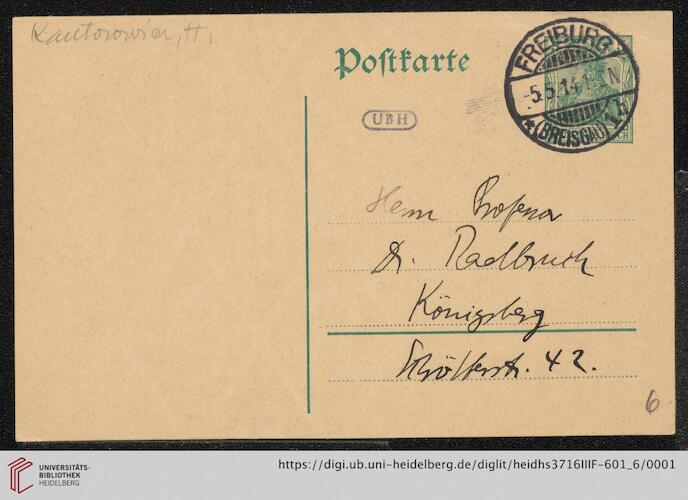 Kantorowicz, H.
Postkarte
FREIBURG
-5.5.14.
* (BREISGAU) 1.h
UBH
Herrn Professor
Dr. Radbruch
Königsberg
42.
6
UNIVERSITÄTS-
BIBLIOTHEK
HEIDELBERG
https://digi.ub.uni-heidelberg.de/diglit/heidhs3716IIIF-601_6/0001